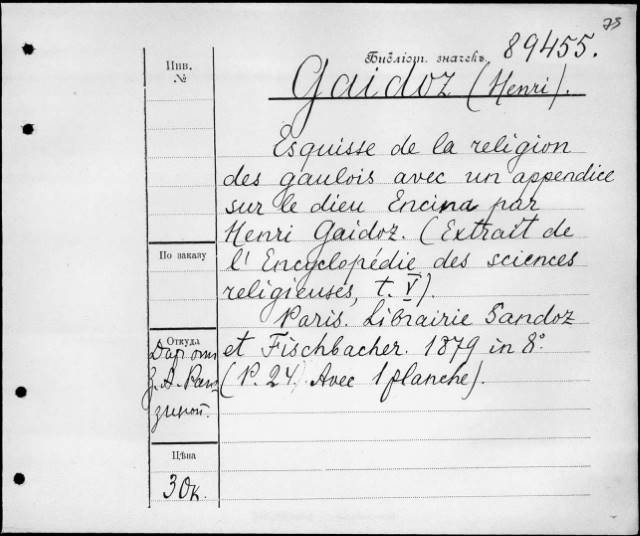 75
Библіот. значекъ 89455.
Инв.
№
Gaidoz (Henri).
Esquisse de la religion
des gaulois avec un appendice
sur le dieu Encina par
Henri Gaidoz. (Extrait de
По заказу
l'Encyclopédie des sciences
religieuses, t. V).
Paris. Librairie Sandoz
Откуда
et Fischbacher. 1879 in 8°
(P. 24. Avec 1 planche).
Дар отъ
Цѣна
30к.